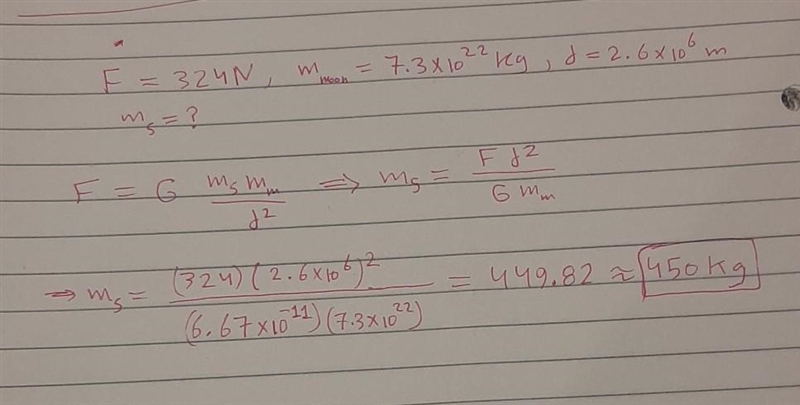 F = 324N, m_moon = 7.3×10²² kg, d = 2.6×10⁶ m
m_s = ?
F = G m_s m_m / d² ⟹ m_s = F d² / G m_m
⟹ m_s = (324)(2.6×10⁶)² / (6.67×10⁻¹¹)(7.3×10²²) = 449.82 ≈ 450 kg